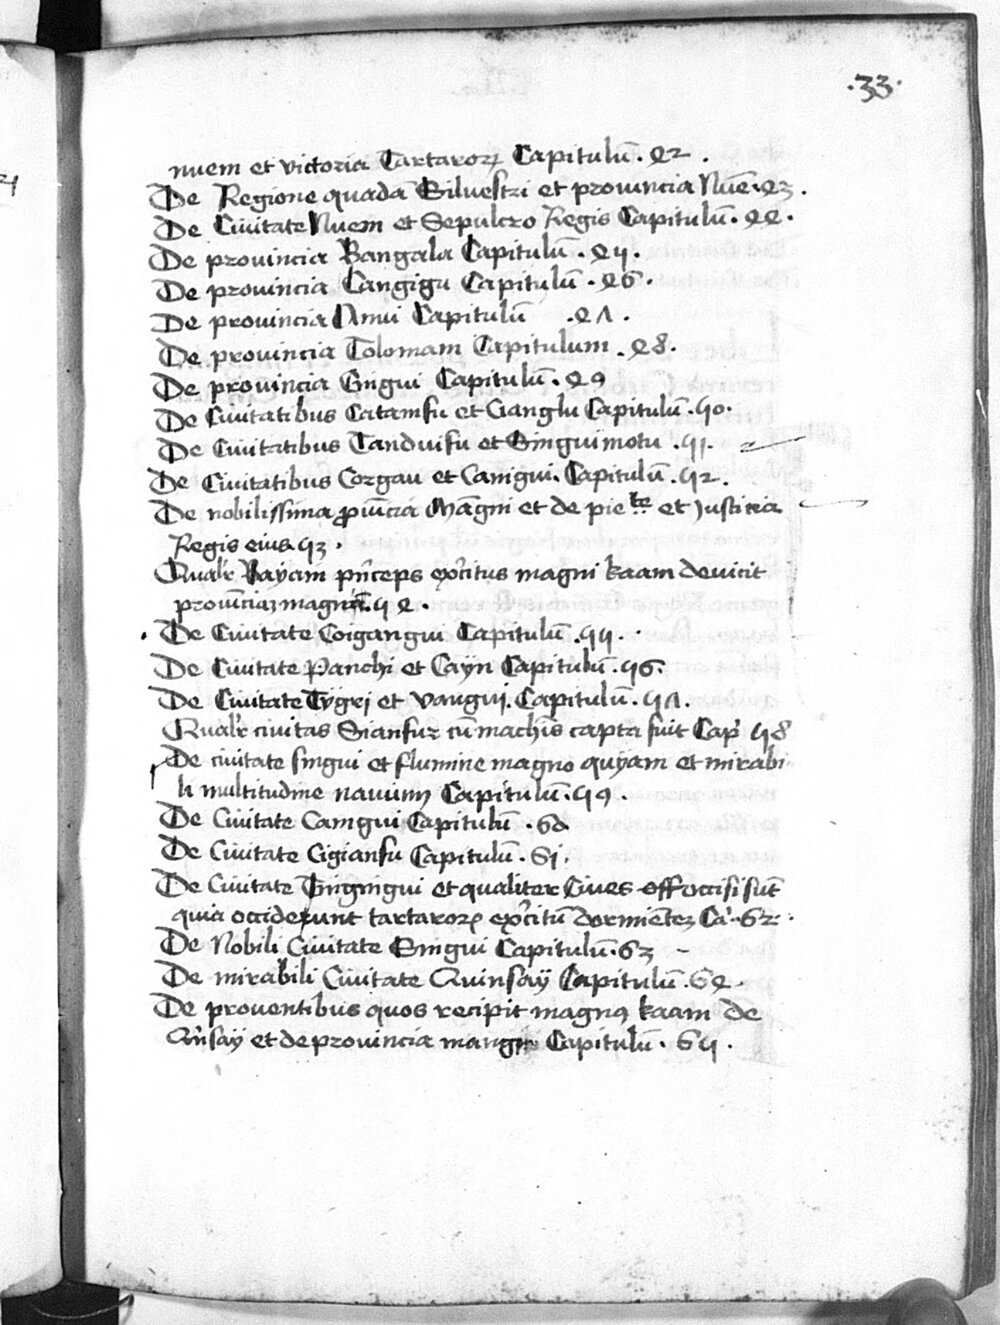 .33.
nuem et victoria Tartarorꝝ Capitulū. 42.
De Regione quadā Silvestri et provincia Nuē. 43.
De Ciuitate Nuem et Sepulcro Regis Capitulū. 44.
De prouincia Bangala Capitulū. 45.
De prouincia Cangigu Capitulū. 46.
De prouincia Amu Capitulū .47.
De prouincia Tolomam Capitulum .48.
De prouincia Gingui Capitulū. 49
De Ciuitatibus Catamfu et Cianglu Capitulū. 50.
De Ciuitatibus Tandvifu et Singuimotu .51.
De Ciuitatibus Corgau et Canigui. Capitulū .52.
De nobilissima ꝓuīcia Māgni et de pieᵗᵉ et Justitia
Regis eius 53.
Qualr̄ Bayam prīceps exr̄citus magni kaam devicit
prouīciaz magnā 54.
De Ciuitate Coigangui Capitulū .55.
De Ciuitate Panchi et Cayn Capitulū. 56.
De Ciuitate Tygrj et vangui. Capitulū. 57.
Qualr̄ ciuitas Sianfuz cū machīs capta fuit Cap̄ 58
De ciuitate singui et flumine magno quyam et mirabi
li multitudine nauium Capitulū. 59.
De Ciuitate Camgui Capitulū .60.
De Ciuitate Cigianfu Capitulū. 61.
De Ciuitate Tingingui et qualiter Ciues occisi sūt
quia occiderunt tartarorꝝ exr̄citū dormiētez Ca. 62.
De Nobili Ciuitate Singui Capitulū. 63
De mirabili Ciuitate Quinsay Capitulū. 64.
De proventibus quos recipit magnꝰ kaam de
Qn̄say et de prouincia mangi Capitulū. 65.